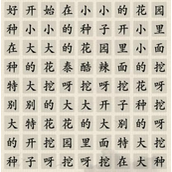 好开始在小小的花园
种小小的种子开小里
在大大的花园里小面
种的花泰酷辣面的挖
特大挖呀挖呀挖花呀
别别的大大开子种挖
大特花花的大别特的
的开挖园里面特别大
种子呀挖呀挖在大种